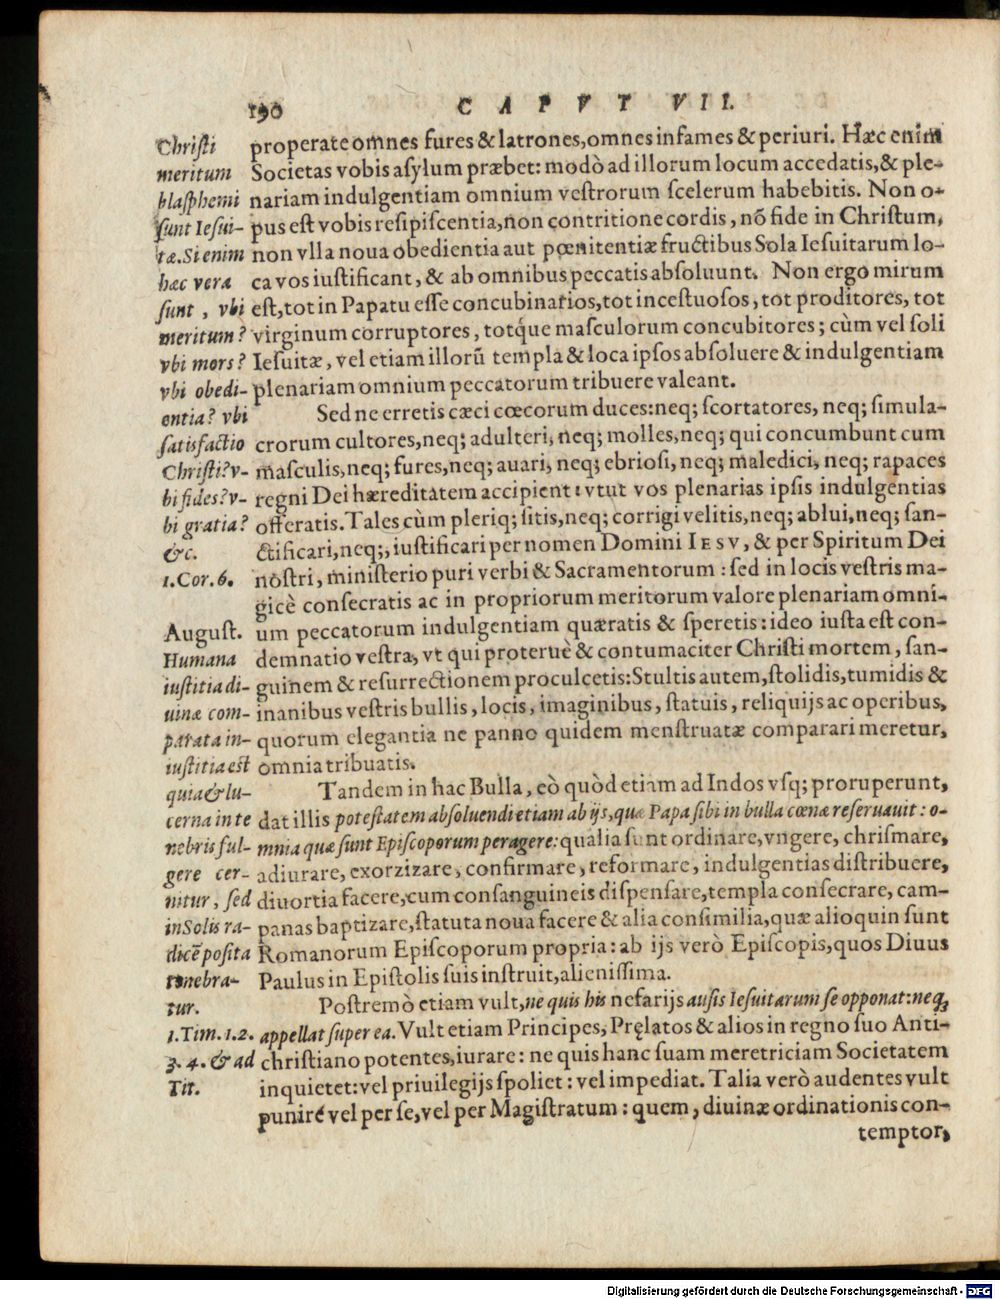 190
CAPVT VII.
Chriſti
meritum
blaſphemi
ſunt Ieſui-
tæ. Si enim
hæc vera
ſunt, vbi
meritum?
vbi mors?
vbi obedi-
entia? vbi
ſatisfactio
Chriſti? v-
bi fides? v-
bi gratia?
&c.
1. Cor. 6.
Auguſt.
Humana
iuſtitia di-
uinæ com-
parata in-
iuſtitia eſt
quia & lu-
cerna in te
nebris ful-
gere cer-
nitur, ſed
in Solis ra-
dicẽ poſita
tenebra-
tur.
1. Tim. 1. 2.
3. 4. & ad
Tit.
properate omnes fures & latrones, omnes infames & periuri. Hæc enim
Societas vobis aſylum præbet: modò ad illorum locum accedatis, & ple-
nariam indulgentiam omnium veſtrorum ſcelerum habebitis. Non o-
pus eſt vobis reſipiſcentia, non contritione cordis, nõ fide in Chriſtum,
non vlla noua obedientia aut pœnitentiæ fructibus Sola Ieſuitarum lo-
ca vos iuſtificant, & ab omnibus peccatis abſoluunt. Non ergo mirum
eſt, tot in Papatu eſſe concubinarios, tot inceſtuoſos, tot proditores, tot
virginum corruptores, totq́ue maſculorum concubitores; cùm vel ſoli
Ieſuitæ, vel etiam illorũ templa & loca ipſos abſoluere & indulgentiam
plenariam omnium peccatorum tribuere valeant.
Sed ne erretis cæci cœcorum duces: neq; ſcortatores, neq; ſimula-
crorum cultores, neq; adulteri, neq; molles, neq; qui concumbunt cum
maſculis, neq; fures, neq; auari, neq; ebrioſi, neq; maledici, neq; rapaces
regni Dei hæreditatem accipient: vtut vos plenarias ipſis indulgentias
offeratis. Tales cùm pleriq; ſitis, neq; corrigi velitis, neq; ablui, neq; ſan-
ctificari, neq;, iuſtificari per nomen Domini IESV, & per Spiritum Dei
noſtri, miniſterio puri verbi & Sacramentorum: ſed in locis veſtris ma-
gicè conſecratis ac in propriorum meritorum valore plenariam omni-
um peccatorum indulgentiam quæratis & ſperetis: ideo iuſta eſt con-
demnatio veſtra, vt qui proteruè & contumaciter Chriſti mortem, ſan-
guinem & reſurrectionem proculcetis: Stultis autem, ſtolidis, tumidis &
inanibus veſtris bullis, locis, imaginibus, ſtatuis, reliquijs ac operibus,
quorum elegantia ne panno quidem menſtruatæ comparari meretur,
omnia tribuatis.
Tandem in hac Bulla, eò quòd etiam ad Indos vſq; proruperunt,
dat illis poteſtatem abſoluendi etiam ab ijs, quæ Papa ſibi in bulla cœnæ reſeruauit: o-
mnia quæ ſunt Epiſcoporum peragere: qualia ſunt ordinare, vngere, chriſmare,
adiurare, exorzizare, confirmare, reformare, indulgentias diſtribuere,
diuortia facere, cum conſanguineis diſpenſare, templa conſecrare, cam-
panas baptizare, ſtatuta noua facere & alia conſimilia, quæ alioquin ſunt
Romanorum Epiſcoporum propria: ab ijs verò Epiſcopis, quos Diuus
Paulus in Epiſtolis ſuis inſtruit, alieniſſima.
Poſtremò etiam vult, ne quis his nefarijs auſis Ieſuitarum ſe opponat: neq;
appellat ſuper ea. Vult etiam Principes, Pręlatos & alios in regno ſuo Anti-
chriſtiano potentes, iurare: ne quis hanc ſuam meretriciam Societatem
inquietet: vel priuilegijs ſpoliet: vel impediat. Talia verò audentes vult
punire vel per ſe, vel per Magiſtratum: quem, diuinæ ordinationis con-
temptor,
Digitalisierung gefördert durch die Deutsche Forschungsgemeinschaft - DFG